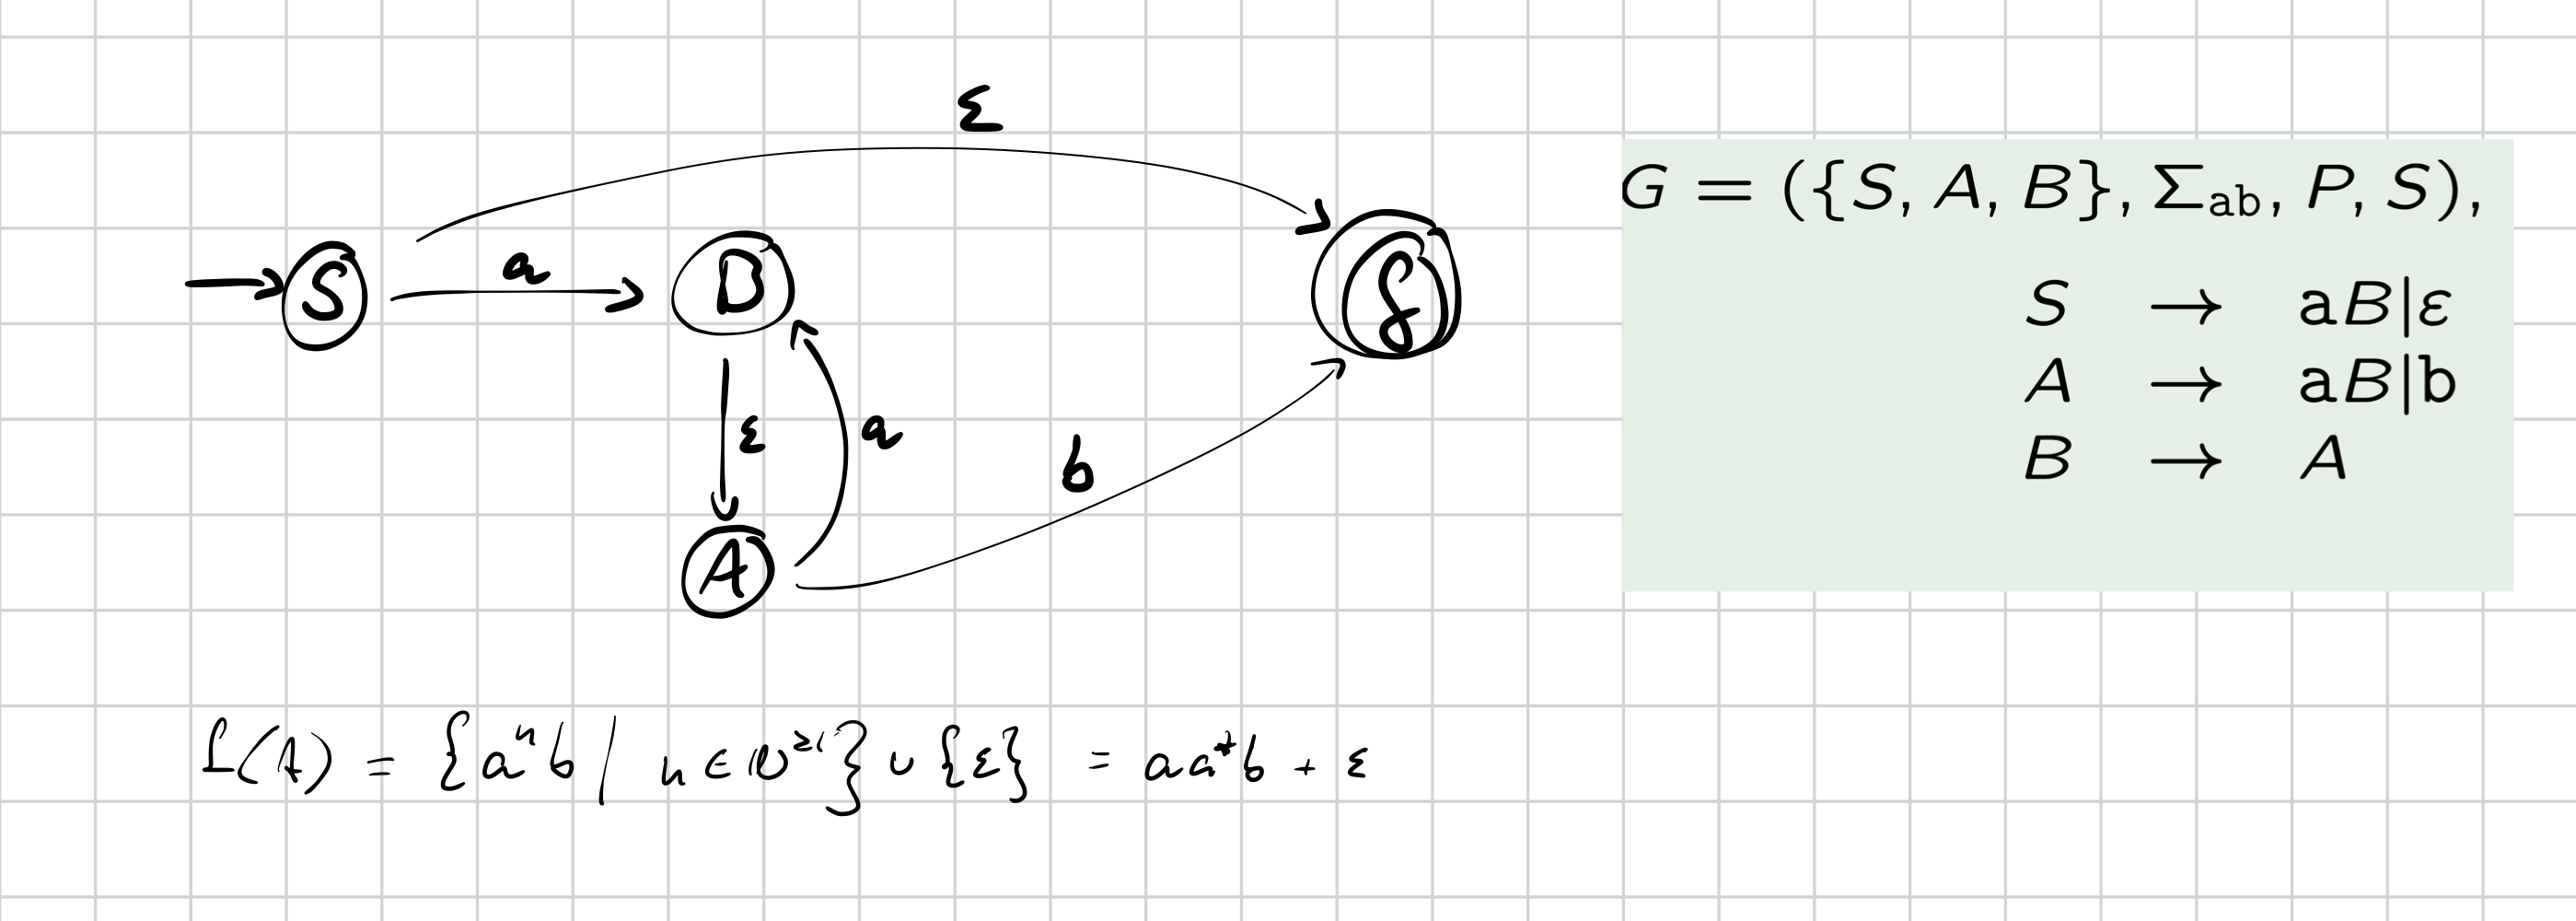 ε
S a B f
ε a
b
A
G = ({S, A, B}, Σab, P, S),
S → aB|ε
A → aB|b
B → A
L(A) = {aⁿb | n ∈ ℕ≥1} ∪ {ε} = aa*b + ε